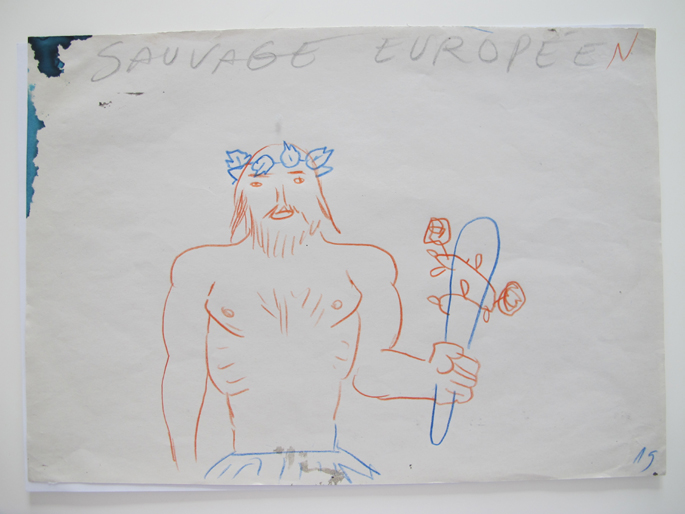 SAUVAGE EUROPÉEN
19